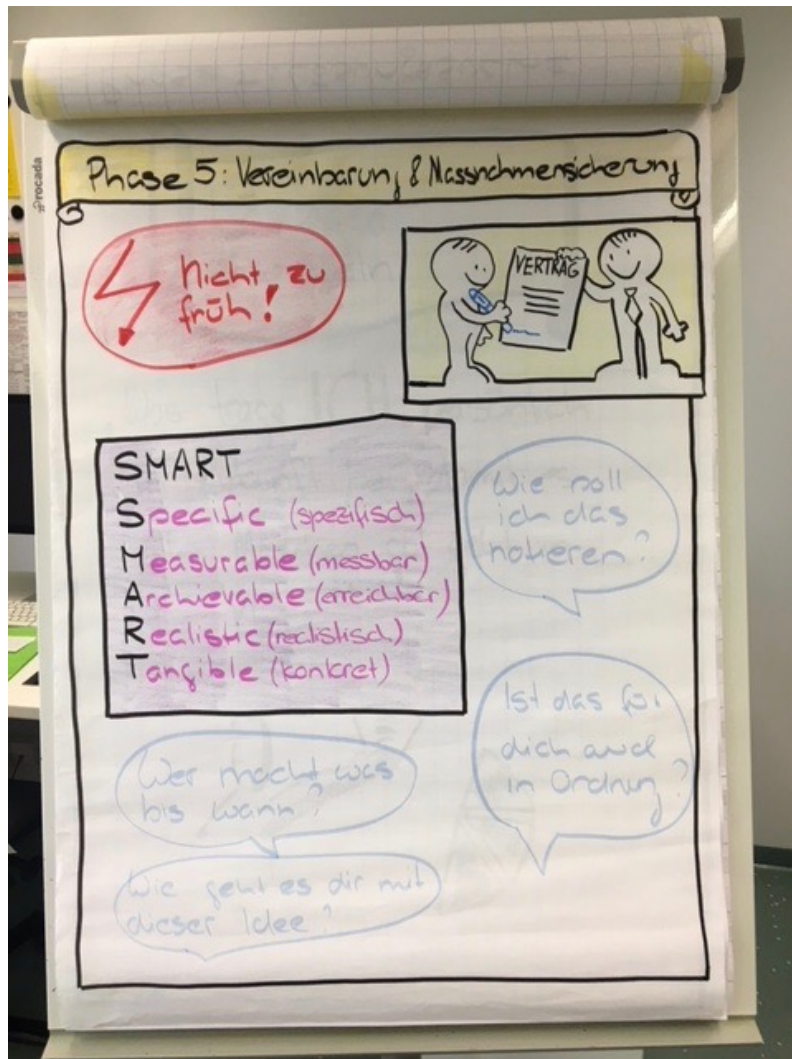 rocada
Phase 5: Vereinbarung & Massnahmensicherung
Nicht zu
früh!
VERTRAG
SMART
Specific (spezifisch)
Measurable (messbar)
Archievable (erreichbar)
Realistic (realistisch)
Tangible (konkret)
Wie soll
ich das
notieren?
Ist das für
dich auch
in Ordnung?
Wer macht was
bis wann?
Wie geht es dir mit
dieser Idee?